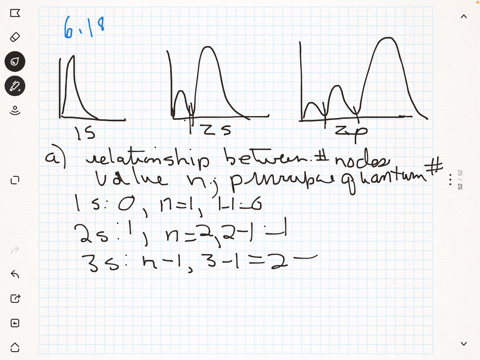 6.18
1S 2s 2p
a) relationship between # nodes
value n, principle quantum #
1s: 0, n=1, 1-1=0
2s: 1, n=2, 2-1=1
3s: n-1, 3-1=2